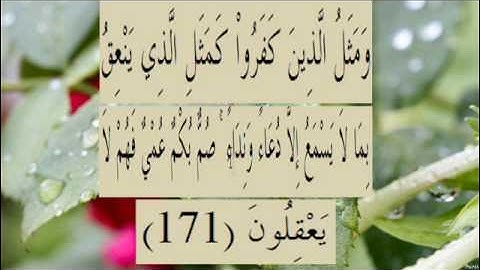 وَمَثَلُ الَّذِينَ كَفَرُواْ كَمَثَلِ الَّذِي يَنْعِقُ
بِمَا لاَ يَسْمَعُ إِلاَّ دُعَاءً وَنِدَاءً ۚ صُمٌّ بُكْمٌ عُمْيٌ فَهُمْ لاَ
يَعْقِلُونَ (171)